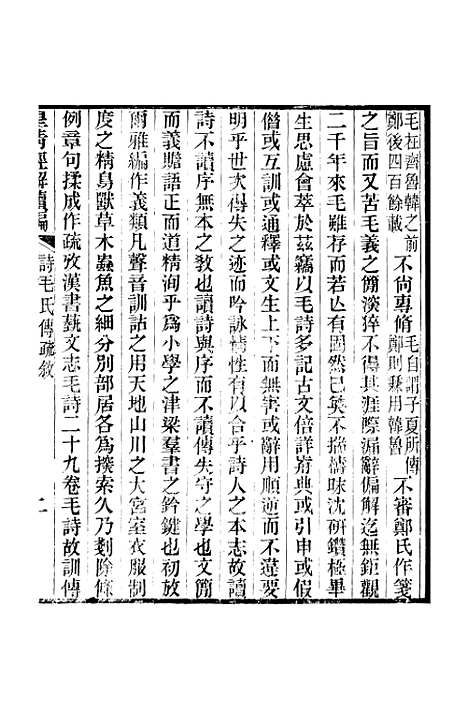 毛在齊魯韓之前
鄭後四百餘載不尚專脩毛自謂子夏所傳
鄭則兼用韓魯不審鄭氏作箋
之旨而又苦毛義之簡淡猝不得其涯際漏辭偏解迄無鉅觀
二千年來毛雖存而若亾有固然已奐不揣檮昧沈硏鑽極畢
生思慮會萃於茲竊以毛詩多記古文倍詳歬典或引申或假
僭或互訓或通釋或文生上下而無害或辭用順逆而不違要
明乎世次得失之迹而吟詠情性有以合乎詩人之本志故讀
詩不讀序無本之敎也讀詩與序而不讀傳失守之學也文簡
而義贍語正而道精洵乎爲小學之津梁羣書之鈐鍵也初放
爾雅編作義類凡聲音訓詁之用天地山川之大宮室衣服制
度之精鳥獸草木蟲魚之細分別部居各爲探索久乃剗除條
例章句揉成作疏攷漢書藝文志毛詩二十九卷毛詩故訓傳
皇淸經解續編
詩毛氏傳疏敘
二